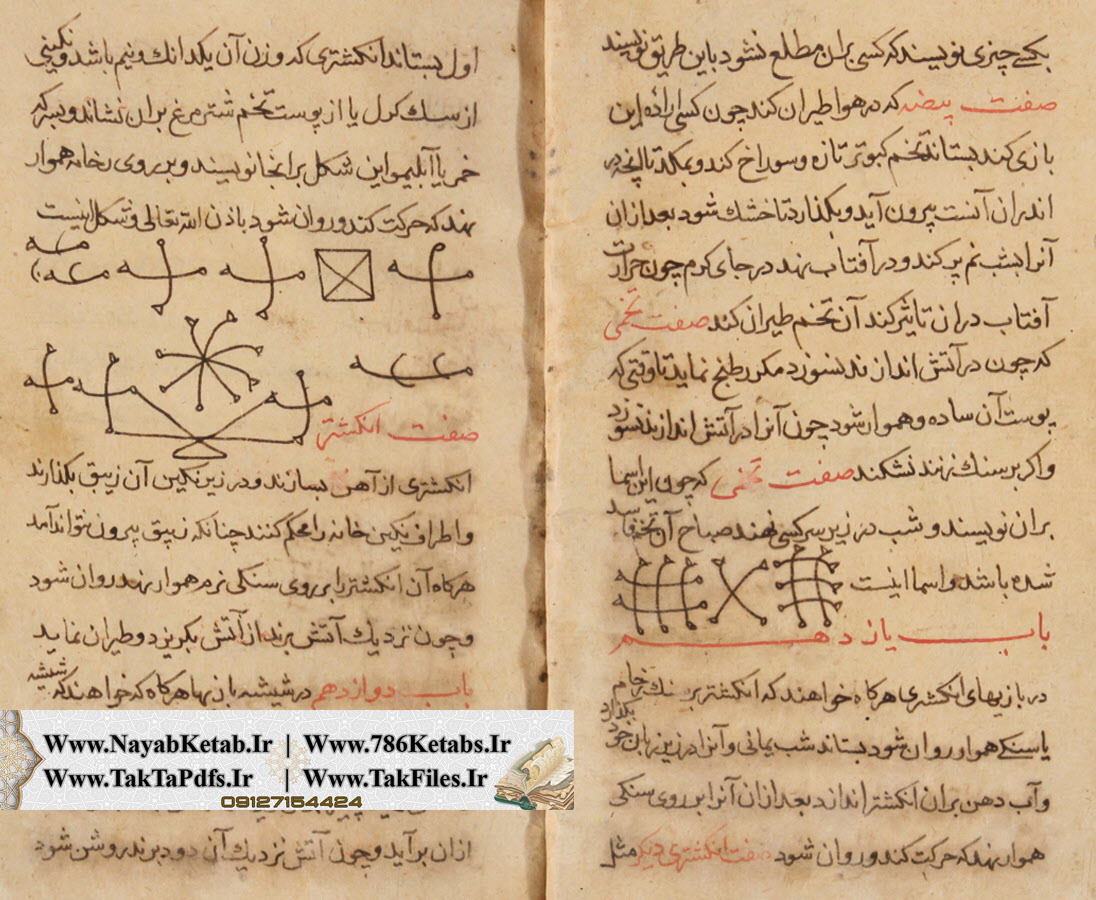 بکسے چیزی نویسند که کسی بران مطلع نشود باین طریق نویسند
صفت بیضه که در هوا طیران کند چون کسی اراده این
بازی کند بستاند تخم کبوتر تازه و سوراخ کند و بمکد تا آنچه در
اندران آنست بیرون آید و بگذارد تا خشک شود بعد ازان
آنرا بشب نم پر کند و در آفتاب نهد در جای گرم چون حرارت
آفتاب دران تاثیر کند آن تخم طیران کند صفت تخمی
که چون در آتش اندازند نسوزد مکرر طبخ نماید تا وقتی که
پوست آن ساده و هموار شود چون آنرا در آتش اندازند نسوزد
و اگر بر سنک زنند نشکند صفت تخمی که چون این اسما
بران نویسند و شب در زیر سر کسی نهند صباح آن تخم فاسد
شده باشد و اسما اینست
باب یازدهم
در بازیهای انکشتری هرکاه خواهند که انکشتر بر سنک رخام
یا سنکے هموار روان شود بستاند شب یمانی و آنرا در زیر زبان خود بگذارد
و آب دهن بران انکشتر اندازد بعد ازان آنرا بر روی سنکی
هموار نهد که حرکت کند و روان شود صفت انکشتری دیکر مثل
اول بستاند انکشتری که وزن آن یکدانک و نیم باشد و نکینی
از سنک یا از پوست تخم شتر مرغ بران نشاند و بسرکه
خمر یا آبلیمو این شکل بر انجا نویسند و بر روی رخامه هموار
نهد که حرکت کند و روان شود باذن الله تعالی و شکل اینست
صفت انکشتر
انکشتری از آهن بسازند و در زیر نکین آن زیبق بکذارند
و اطراف نکین خانه را محکم کنند چنانکه زیبق بیرون نتواند آمد
هرکاه آن انکشتر را بر روی سنکی نرم هموار نهد روان شود
و چون نزدیک آتش برند از آتش بکریزد و طیران نماید
باب دوازدهم در شیشه بازیها هرکاه که خواهند که شیشه
Www.NayabKetab.Ir | Www.786Ketabs.Ir
Www.TakTaPdfs.Ir | Www.TakFiles.Ir
09127154424
ازان برآید و چون آتش نزدیک آن دود برند روشن شود